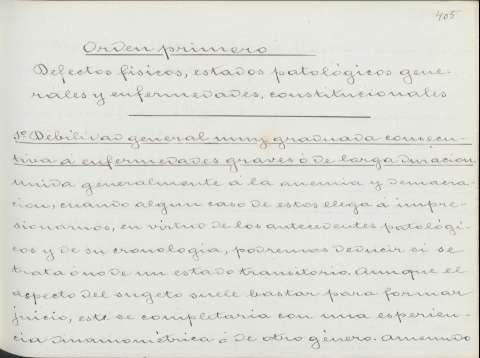 405
Orden primero
Defectos físicos, estados patológicos gene-
rales y enfermedades, constitucionales
1º Debilidad general muy graduada consecu-
tiva á enfermedades graves ó de larga duracion.
unida generalmente á la anemia y demacra-
cion, cuando algun caso de estos llega á impre-
sionarnos, en virtud de los antecedentes patológi-
cos y de su cronologia, podremos deducir si se
trata ó no de un estado transitorio. Aunque el
aspecto del sugeto suele bastar para formar
juicio, este se completaria con una esperien-
cia dinamométrica ó de otro género. Amenudo